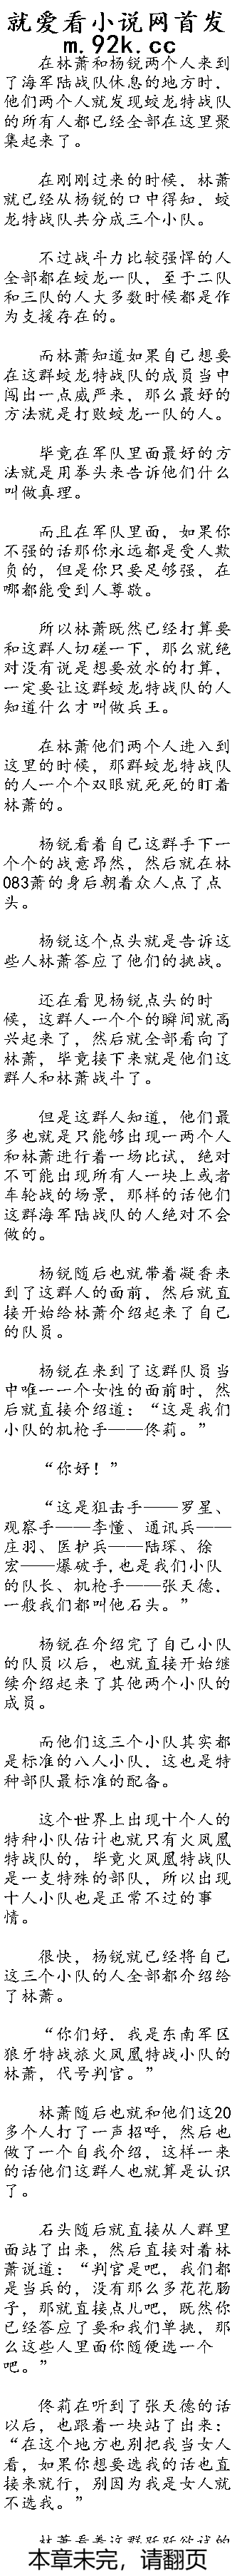 就爱看小说网首发
m.92k.cc
在林萧和杨锐两个人来到
了海军陆战队休息的地方时，
他们两个人就发现蛟龙特战队
的所有人都已经全部在这里聚
集起来了。
在刚刚过来的时候，林萧
就已经从杨锐的口中得知，蛟
龙特战队共分成三个小队。
不过战斗力比较强悍的人
全部都在蛟龙一队，至于二队
和三队的人大多数时候都是作
为支援存在的。
而林萧知道如果自己想要
在这群蛟龙特战队的成员当中
闯出一点威严来，那么最好的
方法就是打败蛟龙一队的人。
毕竟在军队里面最好的方
法就是用拳头来告诉他们什么
叫做真理。
而且在军队里面，如果你
不强的话那你永远都是受人欺
负的，但是你只要足够强，在
哪都能受到人尊敬。
所以林萧既然已经打算要
和这群人切磋一下，那么就绝
对没有说是想要放水的打算，
一定要让这群蛟龙特战队的人
知道什么才叫做兵王。
在林萧他们两个人进入到
这里的时候，那群蛟龙特战队
的人一个个双眼就死死的盯着
林萧的。
杨锐看着自己这群手下一
个个的战意昂然，然后就在林
083萧的身后朝着众人点了点
头。
杨锐这个点头就是告诉这
些人林萧答应了他们的挑战。
还在看见杨锐点头的时
候，这群人一个个的瞬间就高
兴起来了，然后就全部看向了
林萧，毕竟接下来就是他们这
群人和林萧战斗了。
但是这群人知道，他们最
多也就是只能够出现一两个人
和林萧进行着一场比试，绝对
不可能出现所有人一块上或者
车轮战的场景，那样的话他们
这群海军陆战队的人绝对不会
做的。
杨锐随后也就带着凝香来
到了这群人的面前，然后就直
接开始给林萧介绍起来了自己
的队员。
杨锐在来到了这群队员当
中唯一一个女性的面前时，然
后就直接介绍道：“这是我们
小队的机枪手——佟莉。”
“你好！”
“这是狙击手——罗星、
观察手——李懂、通讯兵——
庄羽、医护兵——陆琛、徐
宏——爆破手,也是我们小队
的队长、机枪手——张天德，
一般我们都叫他石头。”
杨锐在介绍完了自己小队
的队员以后，也就直接开始继
续介绍起来了其他两个小队的
成员。
而他们这三个小队其实都
是标准的八人小队，这也是特
种部队最标准的配备。
这个世界上出现十个人的
特种小队估计也就只有火凤凰
特战队的，毕竟火凤凰特战队
是一支特殊的部队，所以出现
十人小队也是正常不过的事
情。
很快，杨锐就已经将自己
这三个小队的人全部都介绍给
了林萧。
“你们好，我是东南军区
狼牙特战旅火凤凰特战小队的
林萧，代号判官。”
林萧随后也就和他们这20
多个人打了一声招呼，然后也
做了一个自我介绍，这样一来
的话他们这群人也就算是认识
了。
石头随后就直接从人群里
面站了出来，然后直接对着林
萧说道：“判官是吧，我们都
是当兵的，没有那么多花花肠
子，那就直接点儿吧，既然你
已经答应了要和我们单挑，那
么这些人里面你随便选一个
吧。”
佟莉在听到了张天德的话
以后，也跟着一块站了出来：
“在这个地方也别把我当女人
看，如果你想要选我的话也直
接来就行，别因为我是女人就
不选我。”
本章未完，请翻页